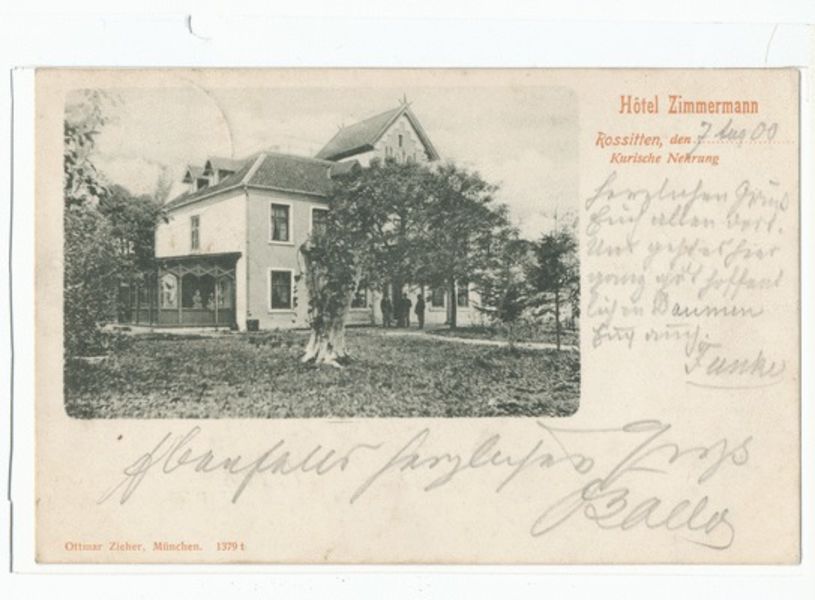 Hôtel Zimmermann
Rossitten, den 7 Aug 00
Kurische Nehrung
Herzlichen Gruß
Euch allen dort.
Uns geht es hier
ganz gut hoffent
lich in Daumen
Euch auch.
Funke
Ebenfalls herzlichen Gruß
Ballo
Ottmar Zieher, München. 1379 t